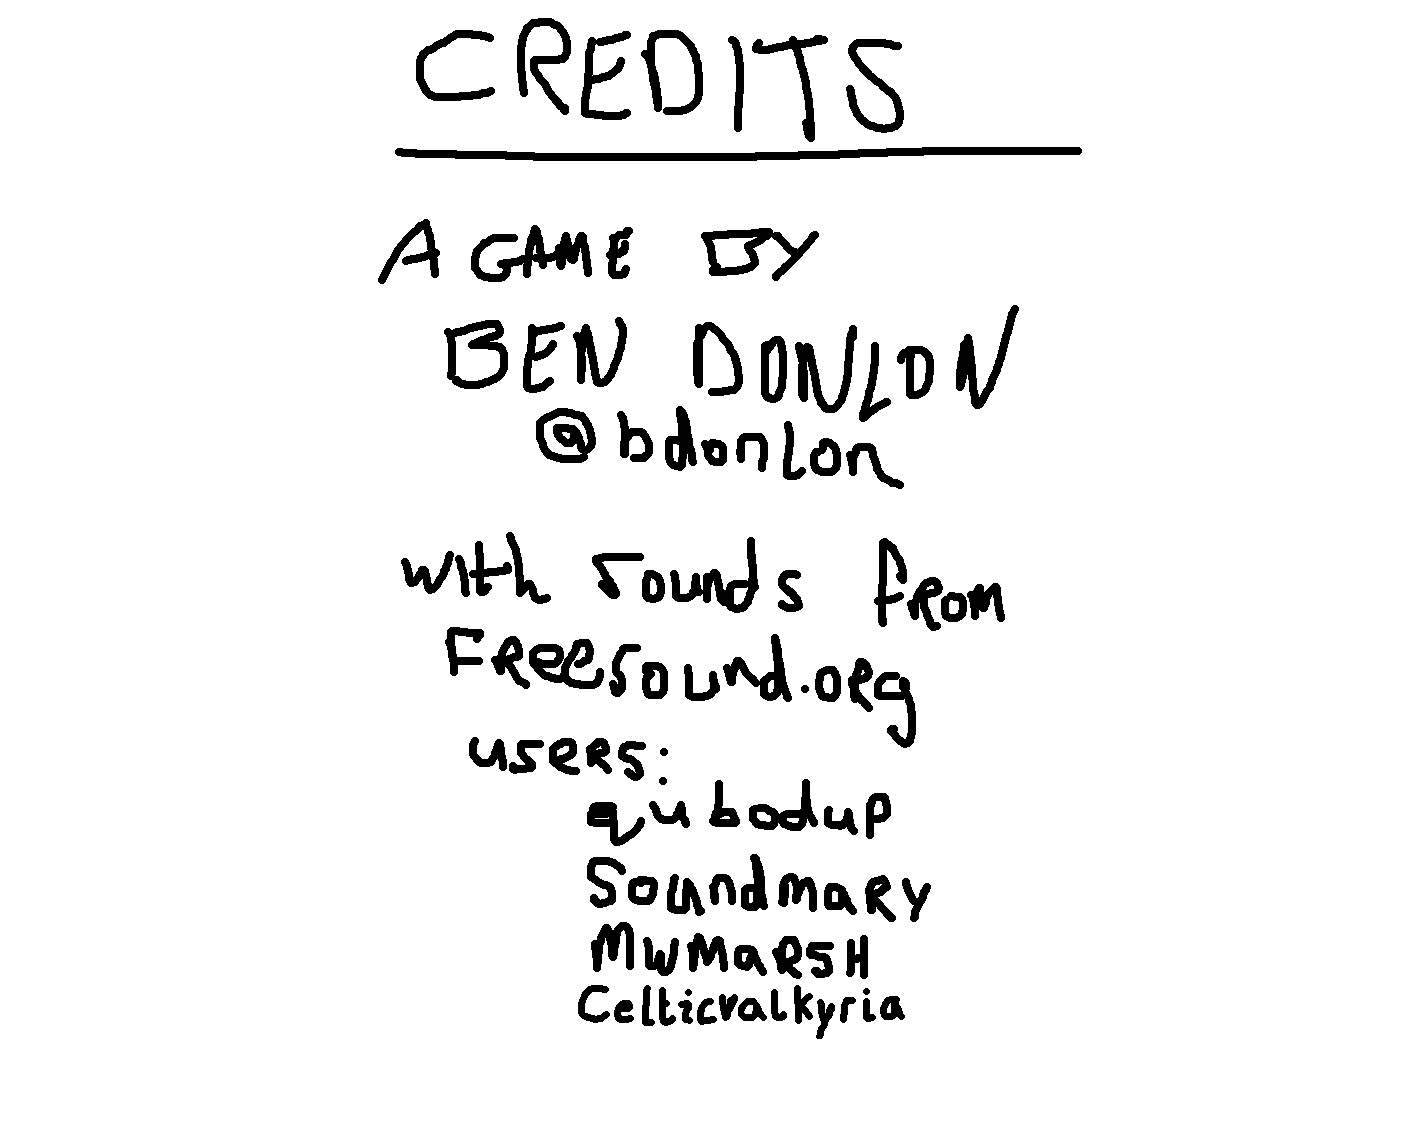 CREDITS
A GAME BY
BEN DONLON
@bdonlon
with sounds from
FReesound.oRg
useRs:
qubodup
SoundmaRy
MWMaRSH
Celticvalkyria